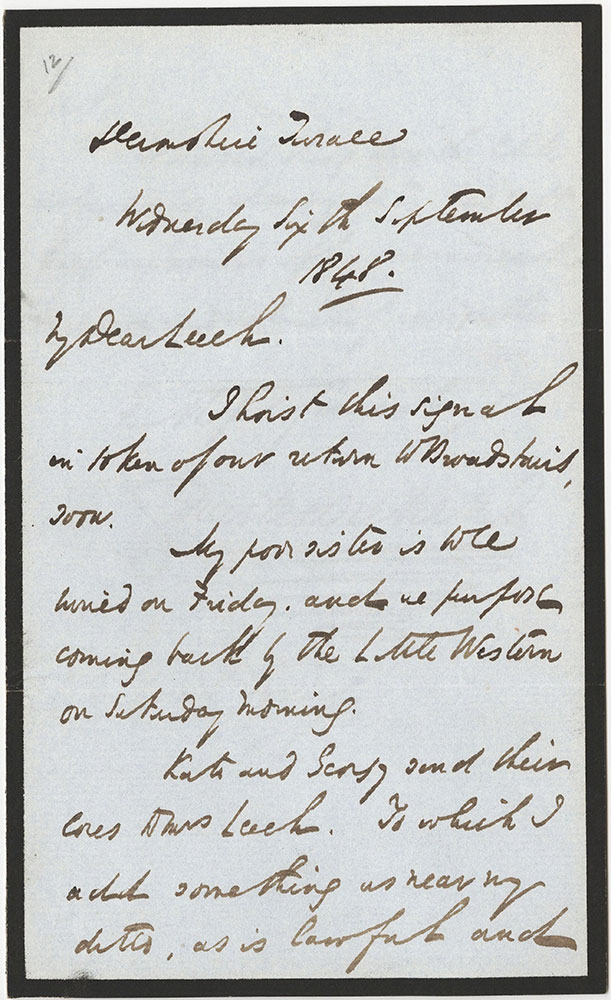 12/
Devonshire Terrace
Wednesday Sixth September
1848.
My Dear Leech.
I hoist this signal
in token of our return to Broadstairs,
soon.
My poor sister is to be
buried on Friday. and we purpose
coming back by the Little Western
on Saturday morning.
Kate and Georgy send their
loves to Mrs Leech. To which I
add something as near my
ditto, as is lawful and